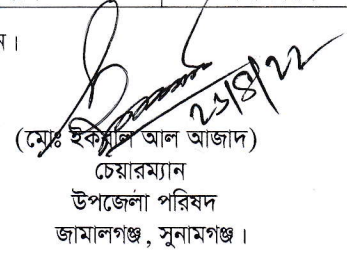 ন।
২৩/৪/২২
(মোঃ ইকবাল আল আজাদ)
চেয়ারম্যান
উপজেলা পরিষদ
জামালগঞ্জ, সুনামগঞ্জ।